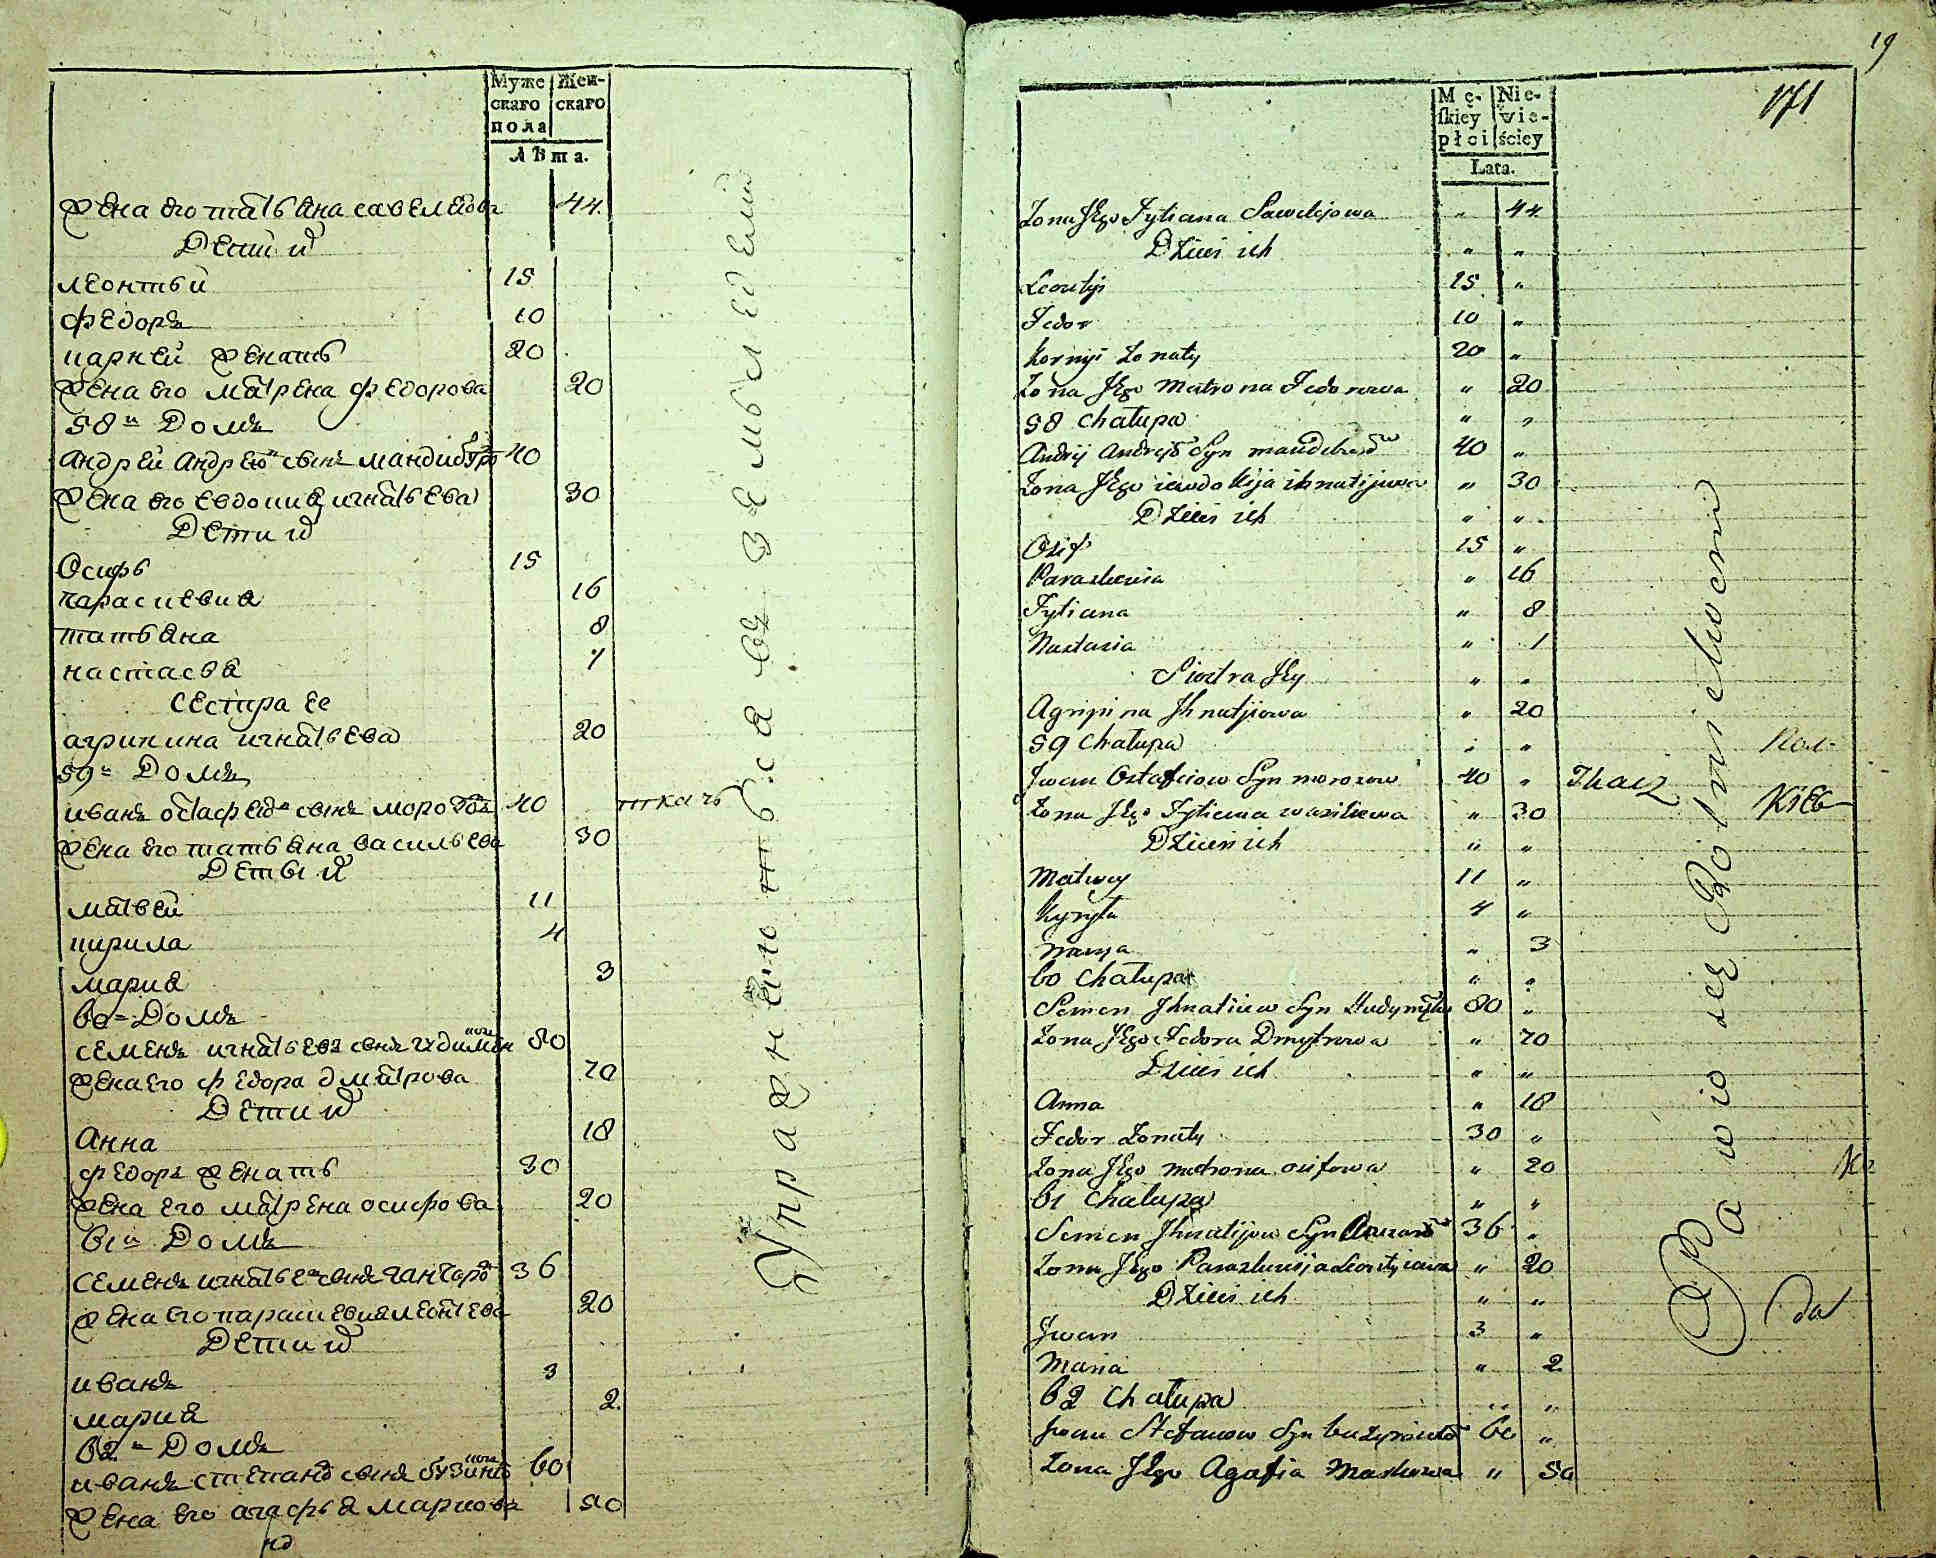 Муже скаго пола
Жен- скаго
Лѣта.
Жена его татьяна савелиева 44.
Дети их
леонтьй 15
федоръ 10
карней женатъ 20
Жена его матрена федорова 20
58й Домъ
андрей андреевъ сынъ 40
Жена его евдокия игнатьева 30
Дети их
Осифъ 15
параскевия 16
татьяна 8
настасья 1
сестра ее
агрипина игнатьева 20
59й Домъ
иванъ остафиевъ сынъ морозовъ 40 ткачъ
Жена его татьяна васильева 30
Деты их
матвей 11
кирила 4
мария 3
60й Домъ
семенъ игнатьевъ сынъ 80
Жена его федора дмитрова 70
Дети их
Анна 18
федоръ женатъ 30
Жена его матрена осифова 20
61й Домъ
семенъ игнатьевъ сынъ 36
Жена его параскевия леонтева 20
Дети их
иванъ 3
мария 2.
62й Домъ
иванъ степановъ сынъ 60
Жена его агафья маркова 50
Упражняются въ земледелии
19
171
Mę- skiey płci
Nie- wie- ściey
Lata.
Zona Jego Tytiana Sawelijowa " 44
Dzieci ich " "
Leontij 15 "
Fedor 10 "
Kornyi Zonaty 20 "
Zona Jego Matrona Fedorowa " 20
58 Chałupa " "
Andrij Andrejow Syn 40 "
Zona Jego iewdokija ihnatijowa " 30
Dzieci ich " "
Osif 15 "
Paraskewia " 16
Tytiana " 8
Nastasia " 1
Siostra Jey " "
Agripina Jhnatjiowa " 20
59 Chałupa " "
Jwan Ostafiow Syn morozow 40 " Tkacz
Zona Jego Tytiana wasilewa " 30
Dzieci ich " "
Matwey 11 "
Kyryła 4 "
Marya " 3
60 Chałupa " "
Semen Jhnatiew Syn 80 "
Zona Jego Fedora Dmytrowa " 70
Dzieci ich " "
Anna " 18
Fedor Zonaty 30 "
Zona Jego matrona osifowa " 20
61 Chałupa " "
Semen Jhnatijow Syn 36 "
Zona Jego Paraskewija Leontijewa " 20
Dzieci ich " "
Jwan 3 "
Maria " 2
62 Chałupa " "
Jwan Stefanow Syn 60 "
Zona Jego Agafia Markowa " 50
Bawio się Rolnictwem